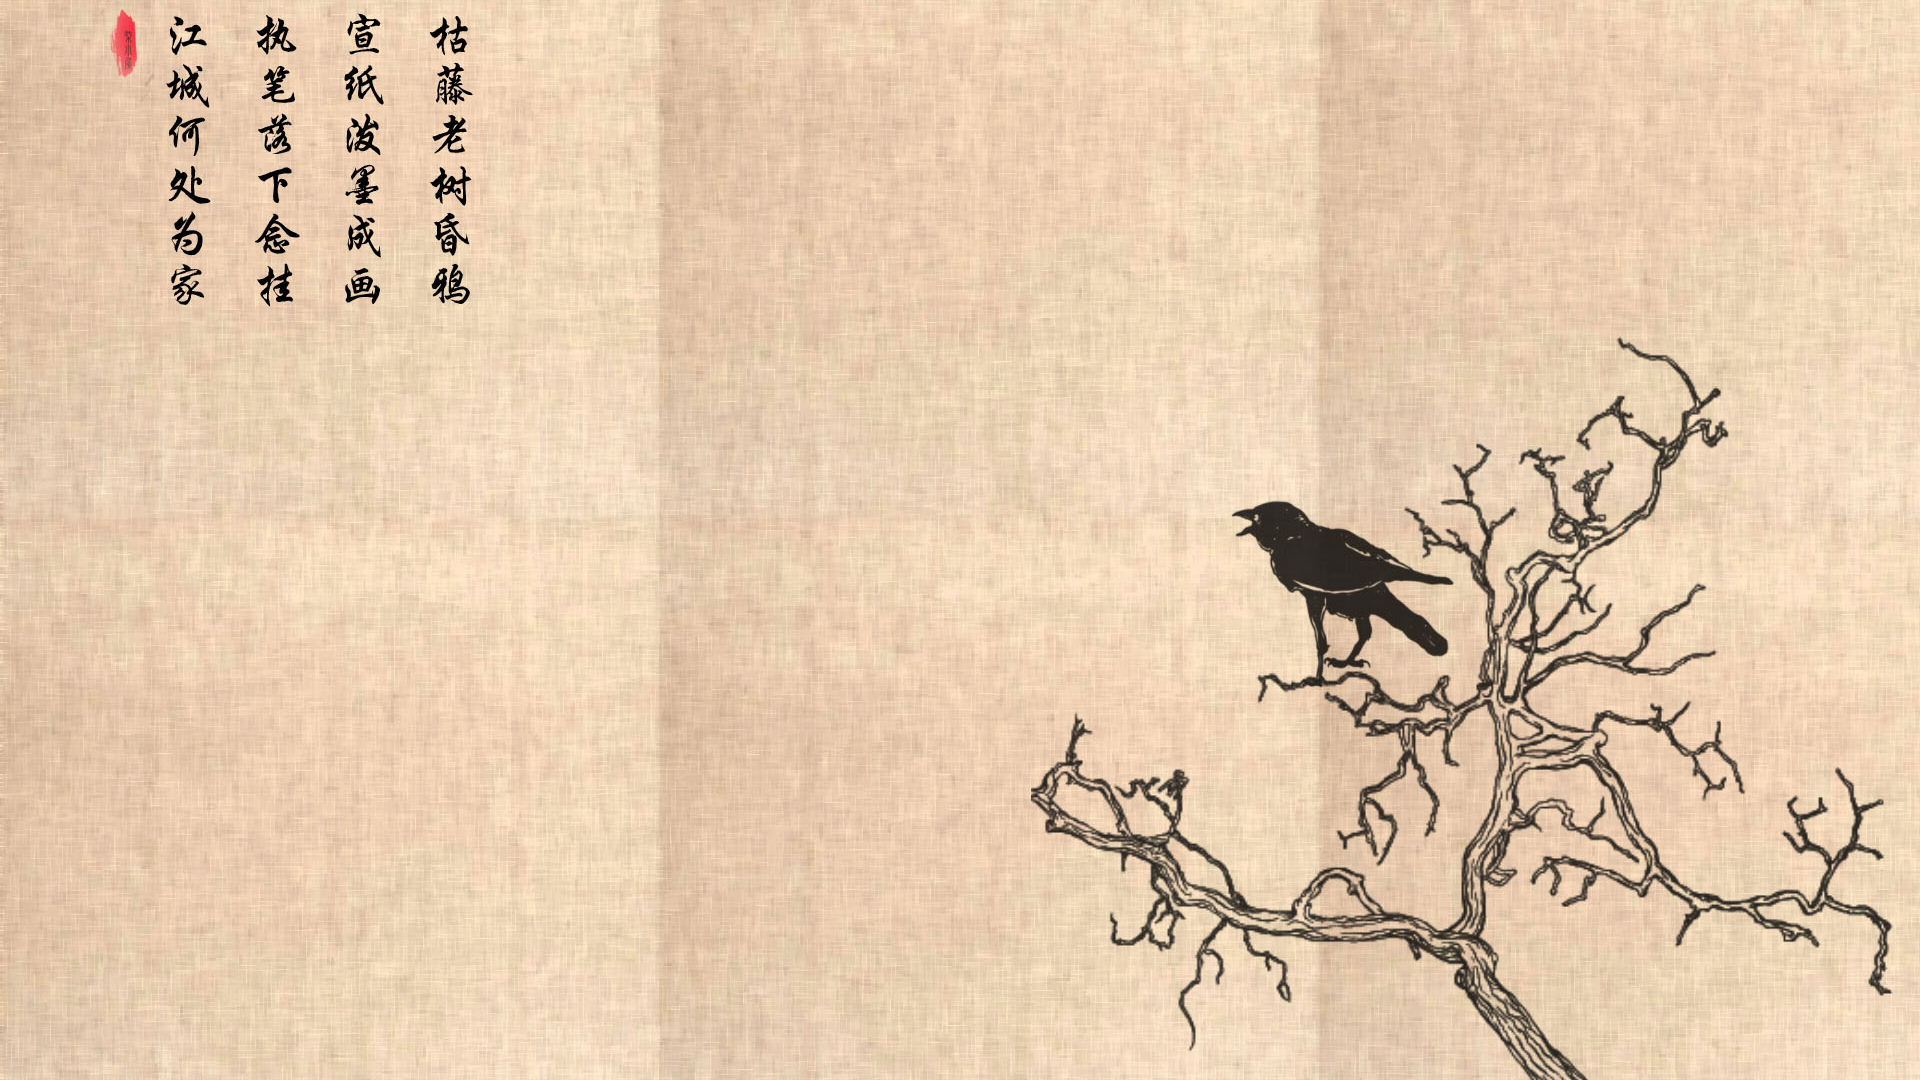 枯藤老树昏鸦
宣纸泼墨成画
执笔落下念挂
江城何处为家